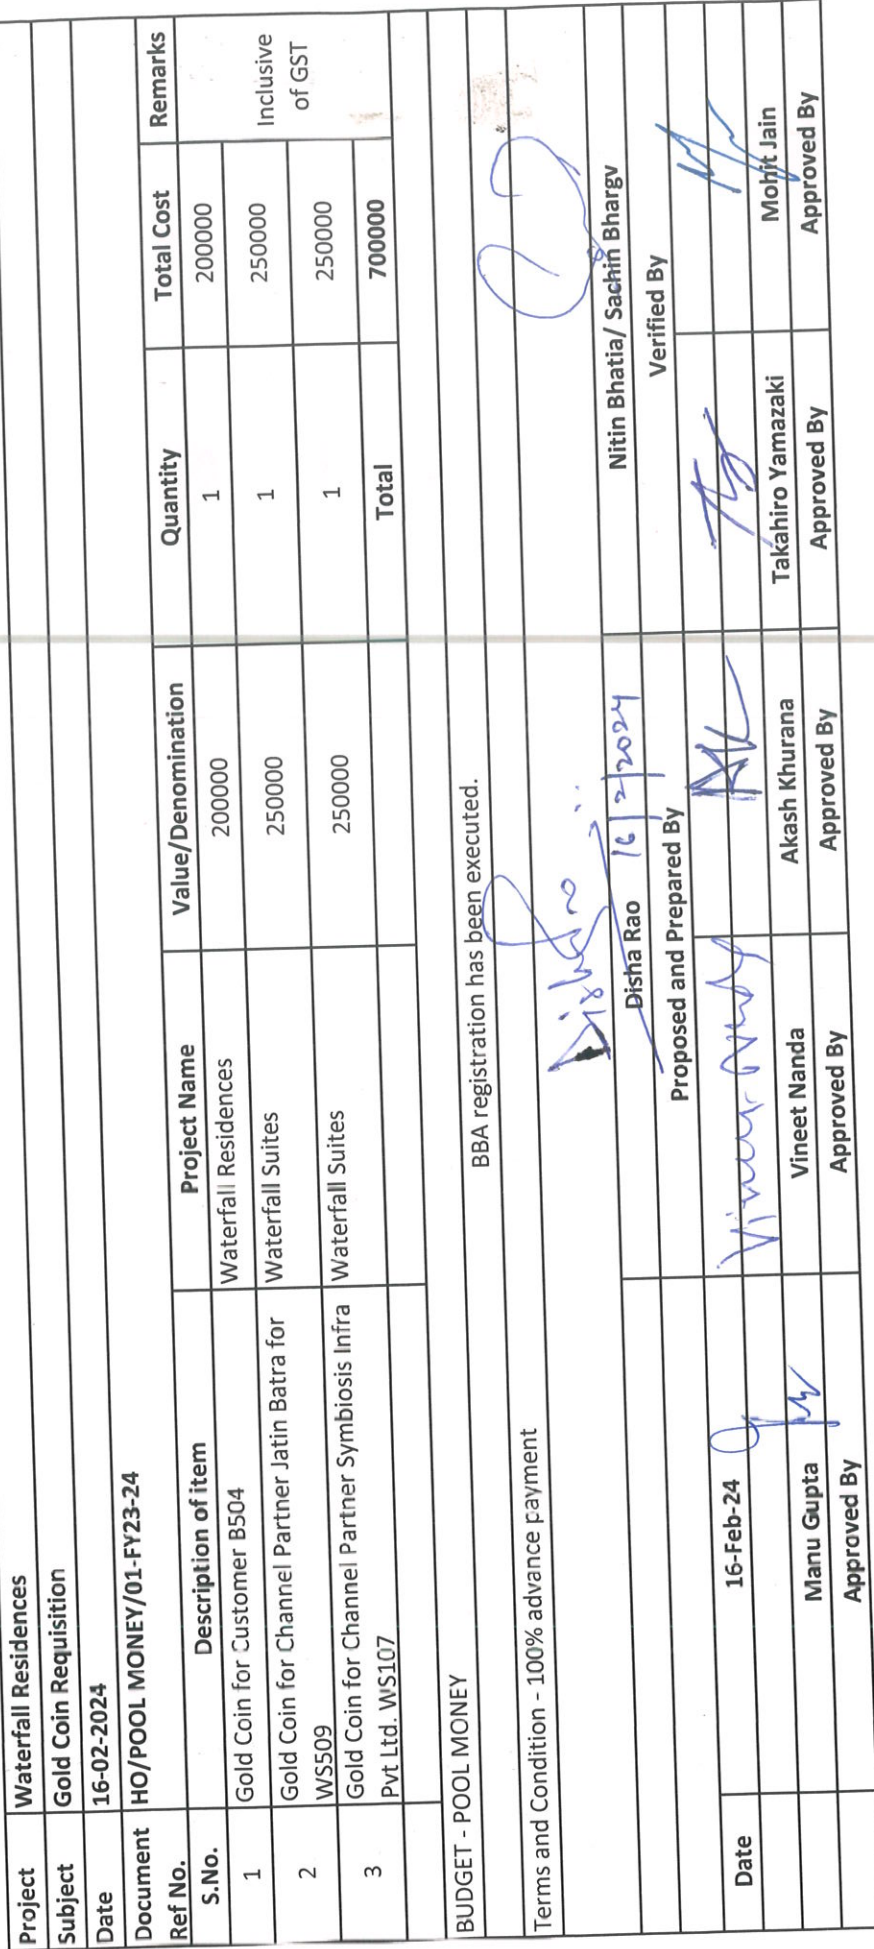 Project Waterfall Residences
Subject Gold Coin Requisition
Date 16-02-2024
Document HO/POOL MONEY/01-FY23-24
Ref No.
S.No. Description of item Project Name Value/Denomination Quantity Total Cost Remarks
1 Gold Coin for Customer B504 Waterfall Residences 200000 1 200000
Inclusive
of GST
2 Gold Coin for Channel Partner Jatin Batra for
WS509 Waterfall Suites 250000 1 250000
3 Gold Coin for Channel Partner Symbiosis Infra
Pvt Ltd. WS107 Waterfall Suites 250000 1 250000
Total 700000
BUDGET - POOL MONEY BBA registration has been executed.
Terms and Condition - 100% advance payment
Disha Rao
16/2/2024
Disha Rao Nitin Bhatia/ Sachin Bhargv
Proposed and Prepared By Verified By
Date 16-Feb-24
Vineet Nanda
Manu Gupta Vineet Nanda Akash Khurana Takahiro Yamazaki Mohit Jain
Approved By Approved By Approved By Approved By Approved By